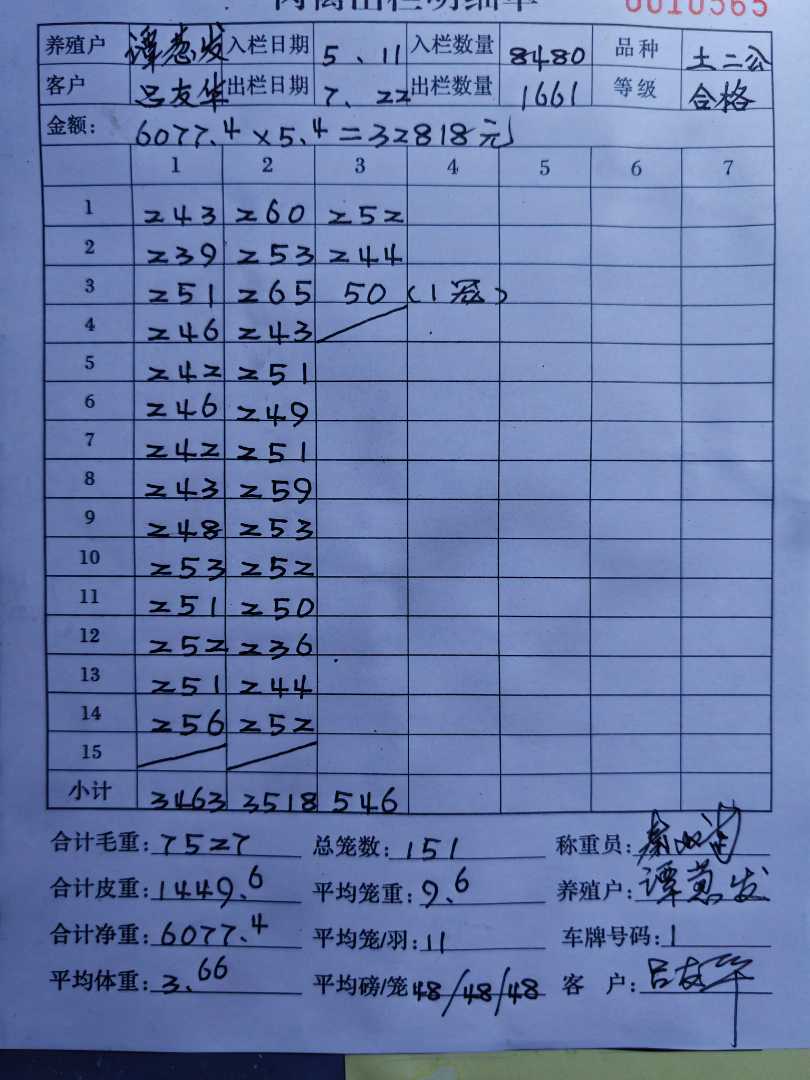 肉禽出栏明细单 0010565
养殖户 谭葱发 入栏日期 5、11 入栏数量 8480 品种 土二公
客户 吕友华 出栏日期 7、22 出栏数量 1661 等级 合格
金额: 6077.4×5.4=32818元
1 2 3 4 5 6 7
1 243 260 252
2 239 253 244
3 251 265 50 (1冠)
4 246 243
5 242 251
6 246 249
7 242 251
8 243 259
9 248 253
10 253 252
11 251 250
12 252 236
13 251 244
14 256 252
15
小计 3463 3518 546
合计毛重: 7527 总笼数: 151 称重员:
合计皮重: 1449.6 平均笼重: 9.6 养殖户: 谭葱发
合计净重: 6077.4 平均笼/羽: 11 车牌号码: 1
平均体重: 3.66 平均磅/笼 48/48/48 客 户: 吕友华